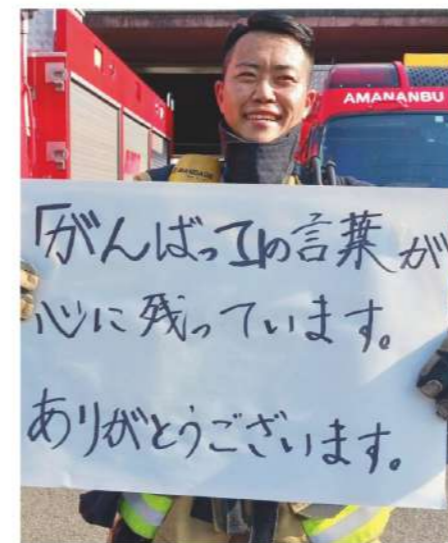 AMANANBU
「がんばって」の言葉が
心に残っています。
ありがとうございます。